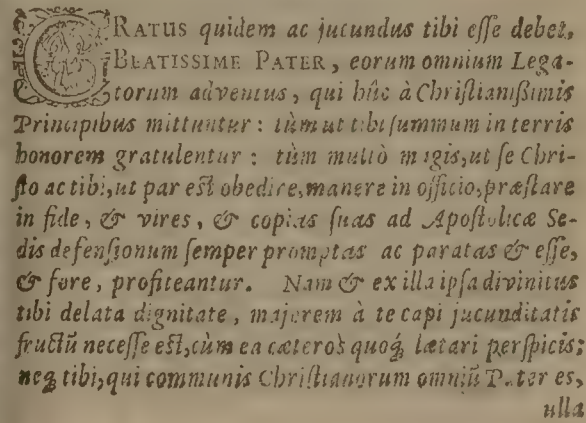 GRATUS quidem ac jucundus tibi esse debet,
BEATISSIME PATER, eorum omnium Lega-
torum adventus, qui húc à Christianissimis
Principibus mittuntur: tùm ut tibi summum in terris
honorem gratulentur: tùm multò magis, ut se Chri-
sto ac tibi, ut par est obedire, manere in officio, præstare
in fide, & vires, & copias suas ad Apostolicæ Se-
dis defensionum semper promptas ac paratas & esse,
& fore, profiteantur. Nam & ex illa ipsa divinitus
tibi delata dignitate, majorem à te capi jucunditatis
fructũ necesse est, cùm ea cæteros quoq; lætari perspicis;
neq; tibi, qui communis Christianorum omniũ Pater es,
ulla